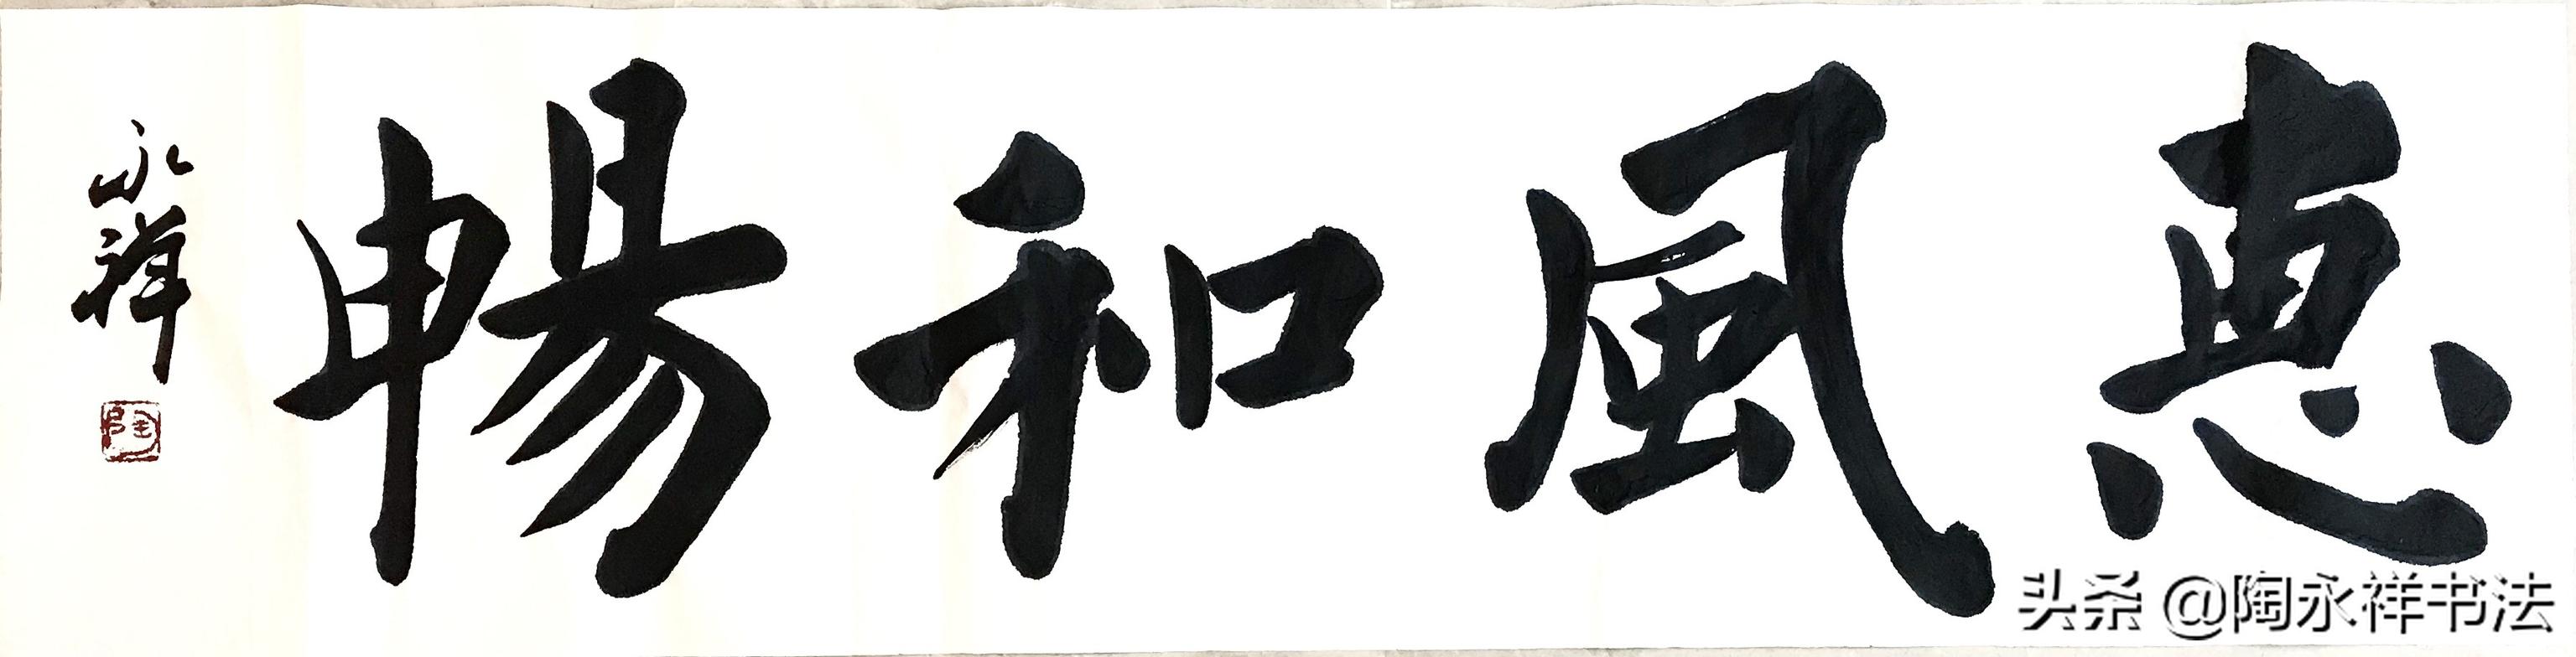 惠風和暢
永祥
陶
头条 @陶永祥书法